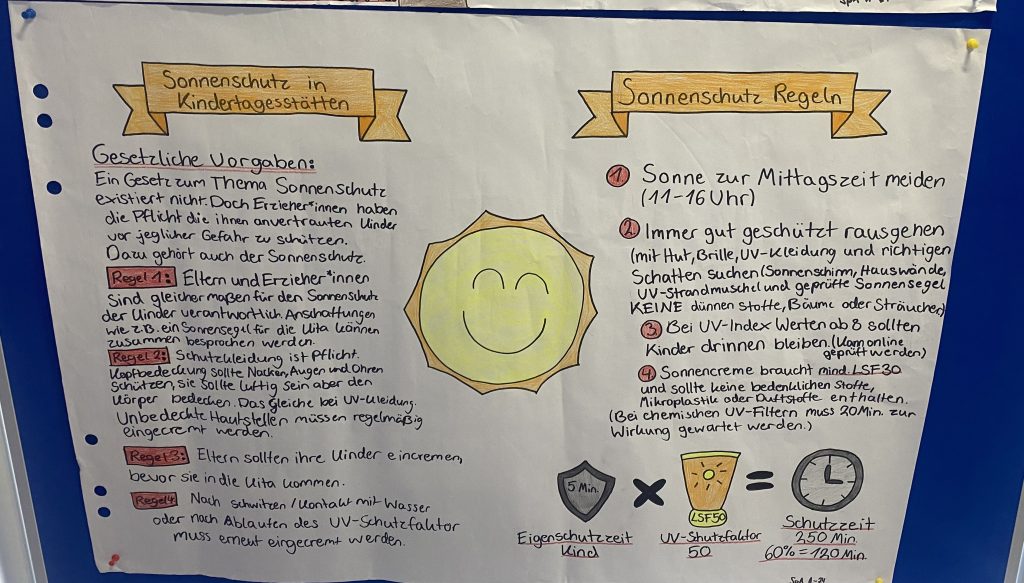 Sonnenschutz in
Kindertagesstätten
Gesetzliche Vorgaben:
Ein Gesetz zum Thema Sonnenschutz
existiert nicht. Doch Erzieher*innen haben
die Pflicht die ihnen anvertrauten Kinder
vor jeglicher Gefahr zu schützen.
Dazu gehört auch der Sonnenschutz.
Regel 1: Eltern und Erzieher*innen
sind gleicher maßen für den Sonnenschutz
der Kinder verantwortlich. Anschaffungen
wie z.B. ein Sonnensegel für die Kita können
zusammen besprochen werden.
Regel 2: Schutzkleidung ist Pflicht.
Kopfbedeckung sollte Nacken, Augen und Ohren
schützen, sie sollte luftig sein aber den
Körper bedecken. Das Gleiche bei UV-Kleidung.
Unbedeckte Hautstellen müssen regelmäßig
eingecremt werden.
Regel 3: Eltern sollten ihre Kinder eincremen,
bevor sie in die Kita kommen.
Regel 4: Nach schwitzen / Kontakt mit Wasser
oder nach Ablaufen des UV-Schutzfaktor
muss erneut eingecremt werden.
Sonnenschutz Regeln
1. Sonne zur Mittagszeit meiden
(11-16 Uhr)
2. Immer gut geschützt rausgehen
(mit Hut, Brille, UV-Kleidung und richtigen
Schatten suchen (Sonnenschirm, Hauswände,
UV-Strandmuschel und geprüfte Sonnensegel
KEINE dünnen Stoffe, Bäume oder Sträucher)
3. Bei UV-Index Werten ab 8 sollten
Kinder drinnen bleiben. (Kann online
geprüft werden)
4. Sonnencreme braucht mind. LSF30
und sollte keine bedenklichen Stoffe,
Mikroplastik oder Duftstoffe enthalten.
(Bei chemischen UV-Filtern muss 20 Min. zur
Wirkung gewartet werden.)
5 Min. x LSF50 =
Eigenschutzzeit
Kind
UV-Shutzfaktor
50
Schutzzeit
250 Min.
60% = 120 Min.